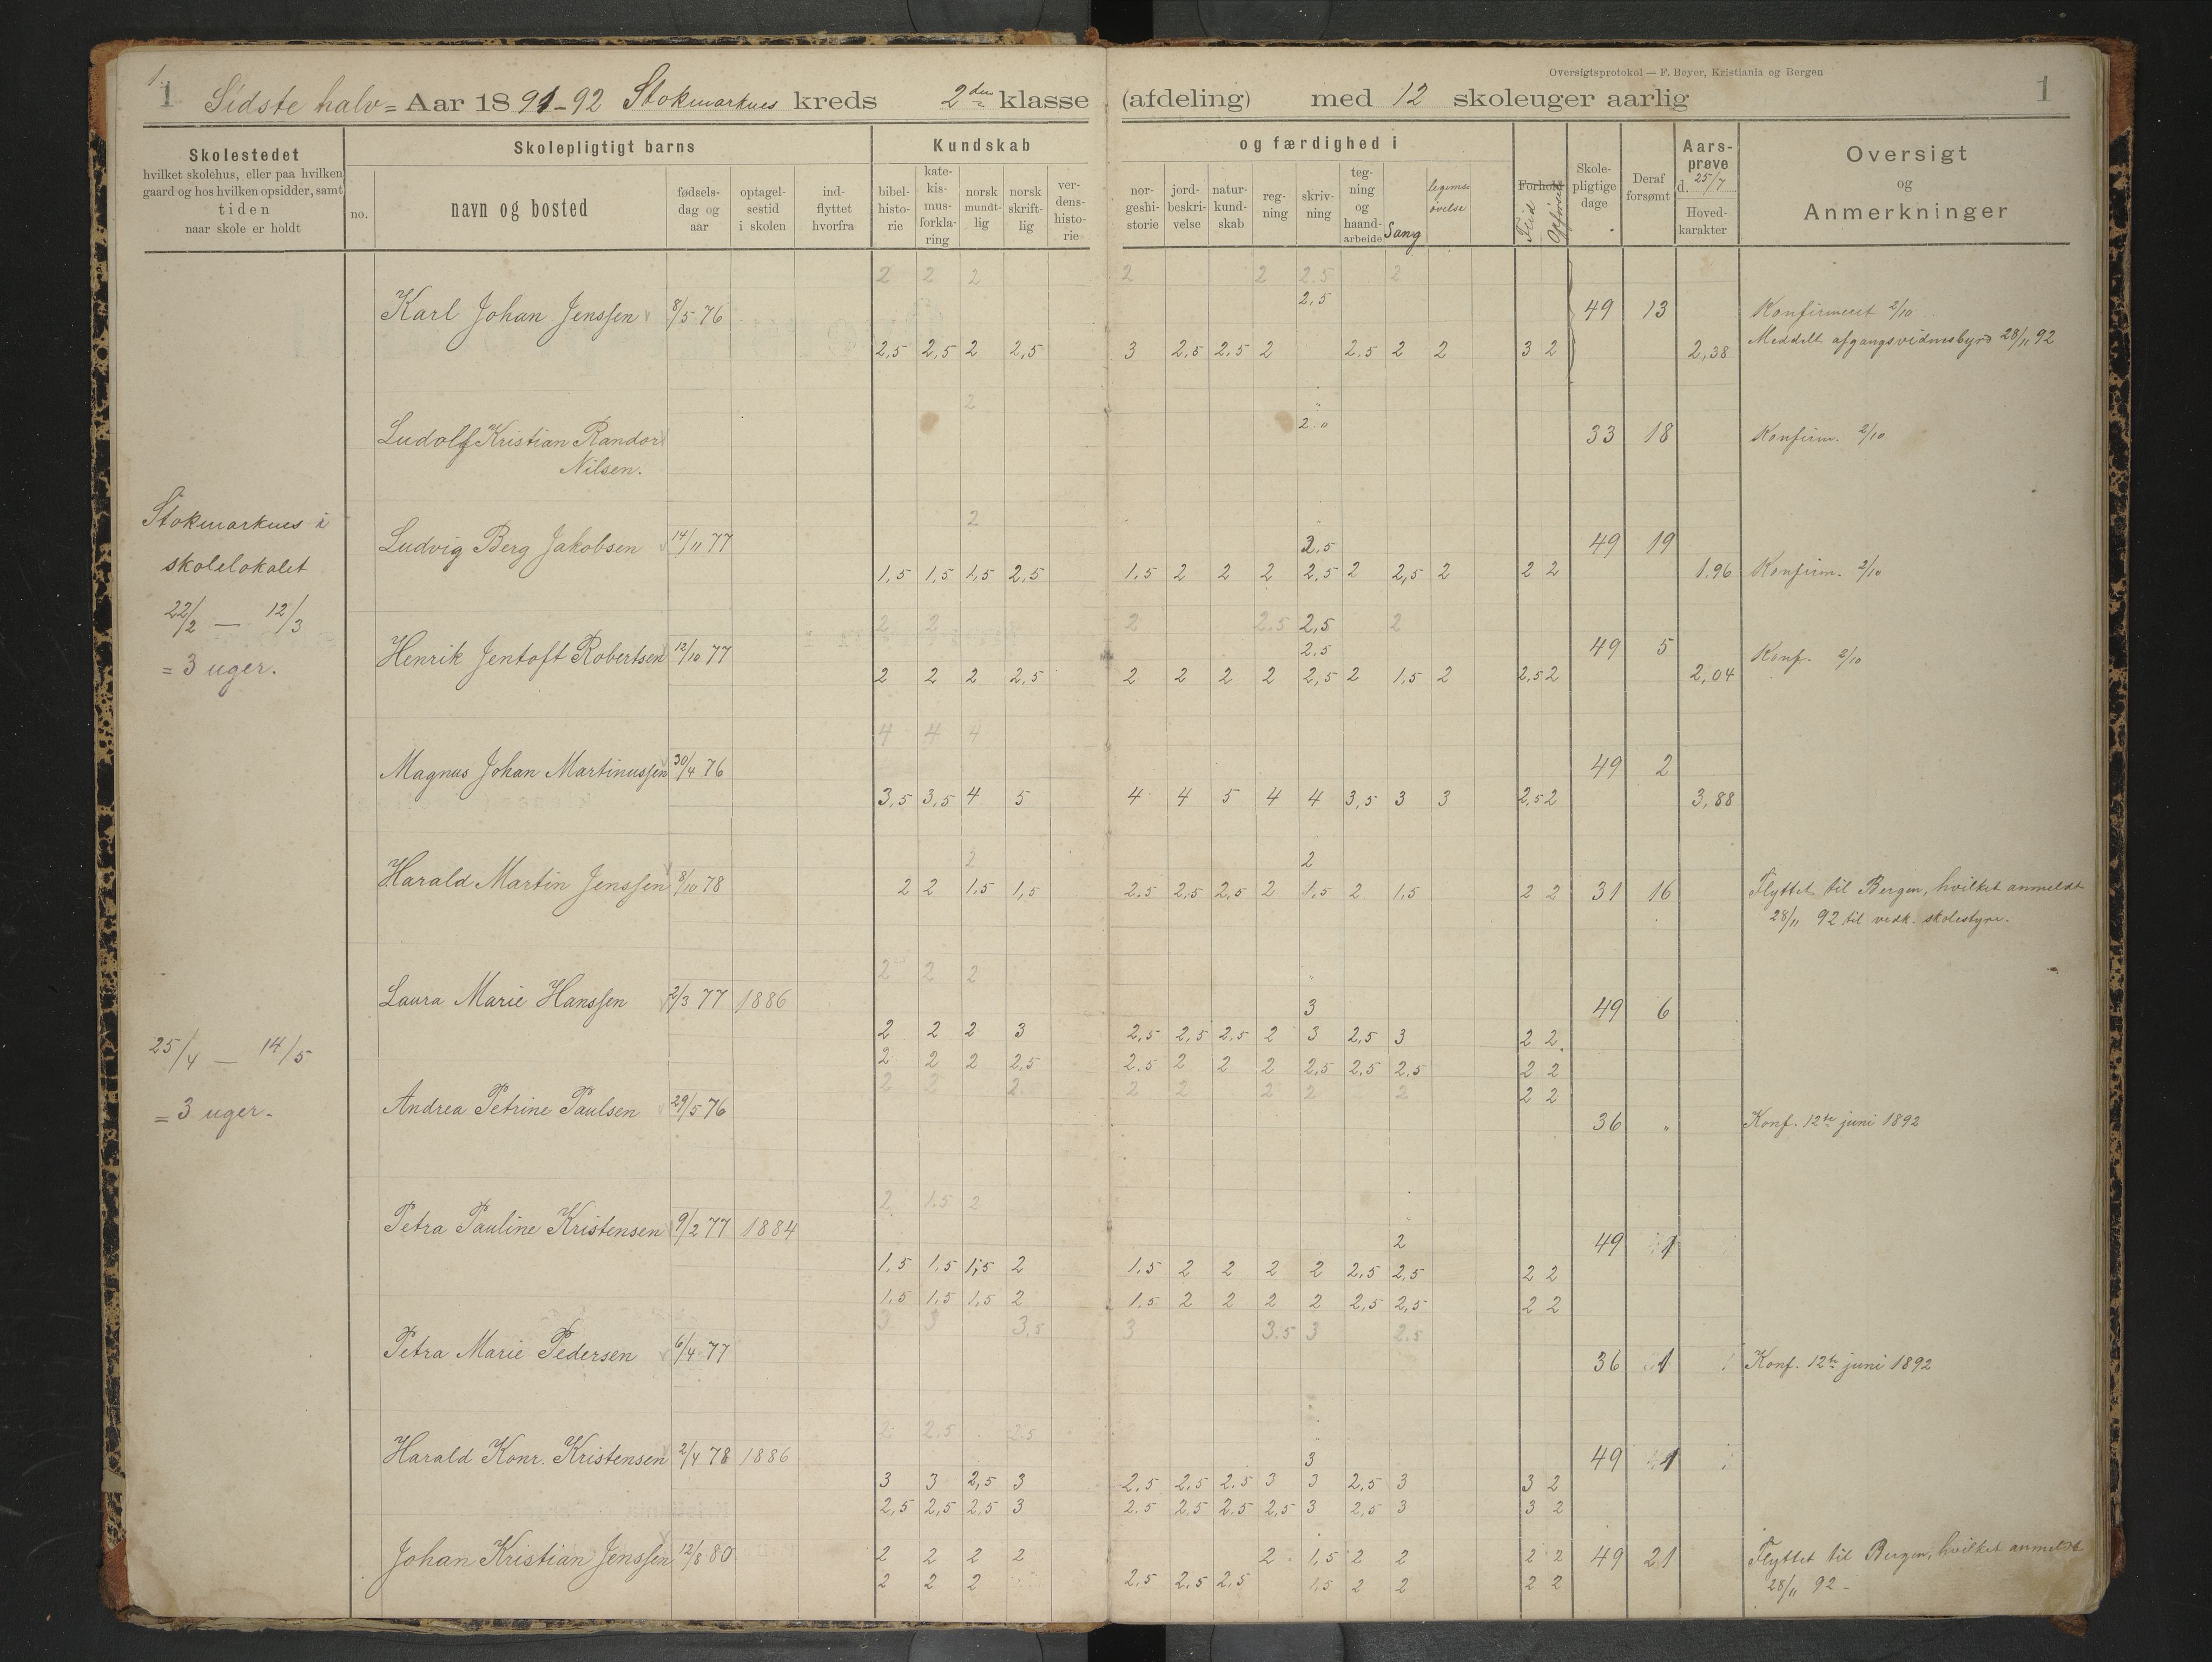 Oversigtsprotokol — F. Beyer, Kristiania og Bergen
1 Sidste halv= Aar 1891-92 Stokmarknes kreds 2den klasse (afdeling) med 12 skoleuger aarlig 1
Skolestedet
hvilket skolehus, eller paa hvilken
gaard og hos hvilken opsidder, samt
tiden
naar skole er holdt
no.
Skolepligtigt barns
navn og bosted
fødsels-
dag og
aar
optagel-
sestid
i skolen
ind-
flyttet
hvorfra
Kundskab og færdighed i
bibel-
histo-
rie
kate-
kis-
mus-
forkla-
ring
norsk
mundt-
lig
norsk
skrift-
lig
ver-
dens-
histo-
rie
nor-
geshi-
storie
jord-
beskri-
velse
natur-
kund-
skab
reg-
ning
skriv-
ning
teg-
ning
og
haand-
arbeide
Sang
legems-
øvelse
Forhold
Flid
Opførsel
Skole-
pligtige
dage
Deraf
forsømt
Aars-
prøve
d. 25/7
Hoved-
karakter
Oversigt
og
Anmerkninger
2 2 2 2 2 2.5 2
2,5
Karl Johan Jenssen 8/5 76 49 13 Konfirmeret 2/10
2,5 2,5 2 2,5 3 2,5 2,5 2 2.5 2 2 3 2 2,38 Meddelt afgangsvidnesbyrd 28/11 92
2
2.0
Ludolf Kristian Randor 33 18 Konfirm. 2/10
Nilsen.
Stokmarknes i
skolelokalet
22/2 — 12/3
= 3 uger.
2
Ludvig Berg Jakobsen 14/11 77 2,5 49 19
1,5 1,5 1,5 2,5 1,5 2 2 2 2,5 2 2,5 2 2 2 1.96 Konfirm. 2/10
2 2 2 2.5 2,5 2
Henrik Jentoft Robertsen 12/10 77 2.5 49 5 Konf. 2/10
2 2 2 2,5 2 2 2 2 2,5 2 1,5 2 2,5 2 2,04
4 4 4
Magnus Johan Martinussen 30/4 76 49 2
3,5 3,5 4 5 4 4 5 4 4 3,5 3 3 2,5 2 3,88
2 2
Harald Martin Jenssen 8/10 78 2 2 1,5 1,5 2,5 2,5 2,5 2 1,5 2 1,5 2 2 31 16 Flyttet til Bergen, hvilket anmeldt
28/11 92 til vedk. skolestyre.
2 2 2
Laura Marie Hanssen 2/3 77 1886 3 49 6
2 2 2 3 2,5 2,5 2,5 2 3 2,5 3 2 2
2 2 2 2,5 2.5 2 2 2 2,5 2,5 2,5 2 2
25/4 — 14/5
= 3 uger.
2 2 2 2 2 2 2 2 2 2
Andrea Petrine Paulsen 29/5 76 36 " Konf. 12te juni 1892
2 1.5 2
Petra Pauline Kristensen 9/2 77 1884 2 49 1
1,5 1,5 1,5 2 1,5 2 2 2 2 2,5 2,5 2 2
1,5 1,5 1,5 2 1,5 2 2 2 2 2,5 2,5 2 2
3 3 3,5 3 3.5 3 2.5
Petra Marie Pedersen 6/4 77 36 1 Konf. 12te juni 1892
2 2.5 2.5
Harald Konr. Kristensen 2/4 78 1886 3 49 1
3 3 2,5 3 2,5 2,5 2,5 3 3 2,5 3 3 2
2,5 2,5 2,5 3 2.5 2,5 2,5 2,5 3 2,5 3 3 2
Johan Kristian Jenssen 12/8 80 2 2 2 2 2 1,5 2 2 2 2 49 21 Flyttet til Bergen, hvilket anmeldt
2 2 2 2.5 2,5 2,5 1,5 2 2 2 2 28/11 92 -